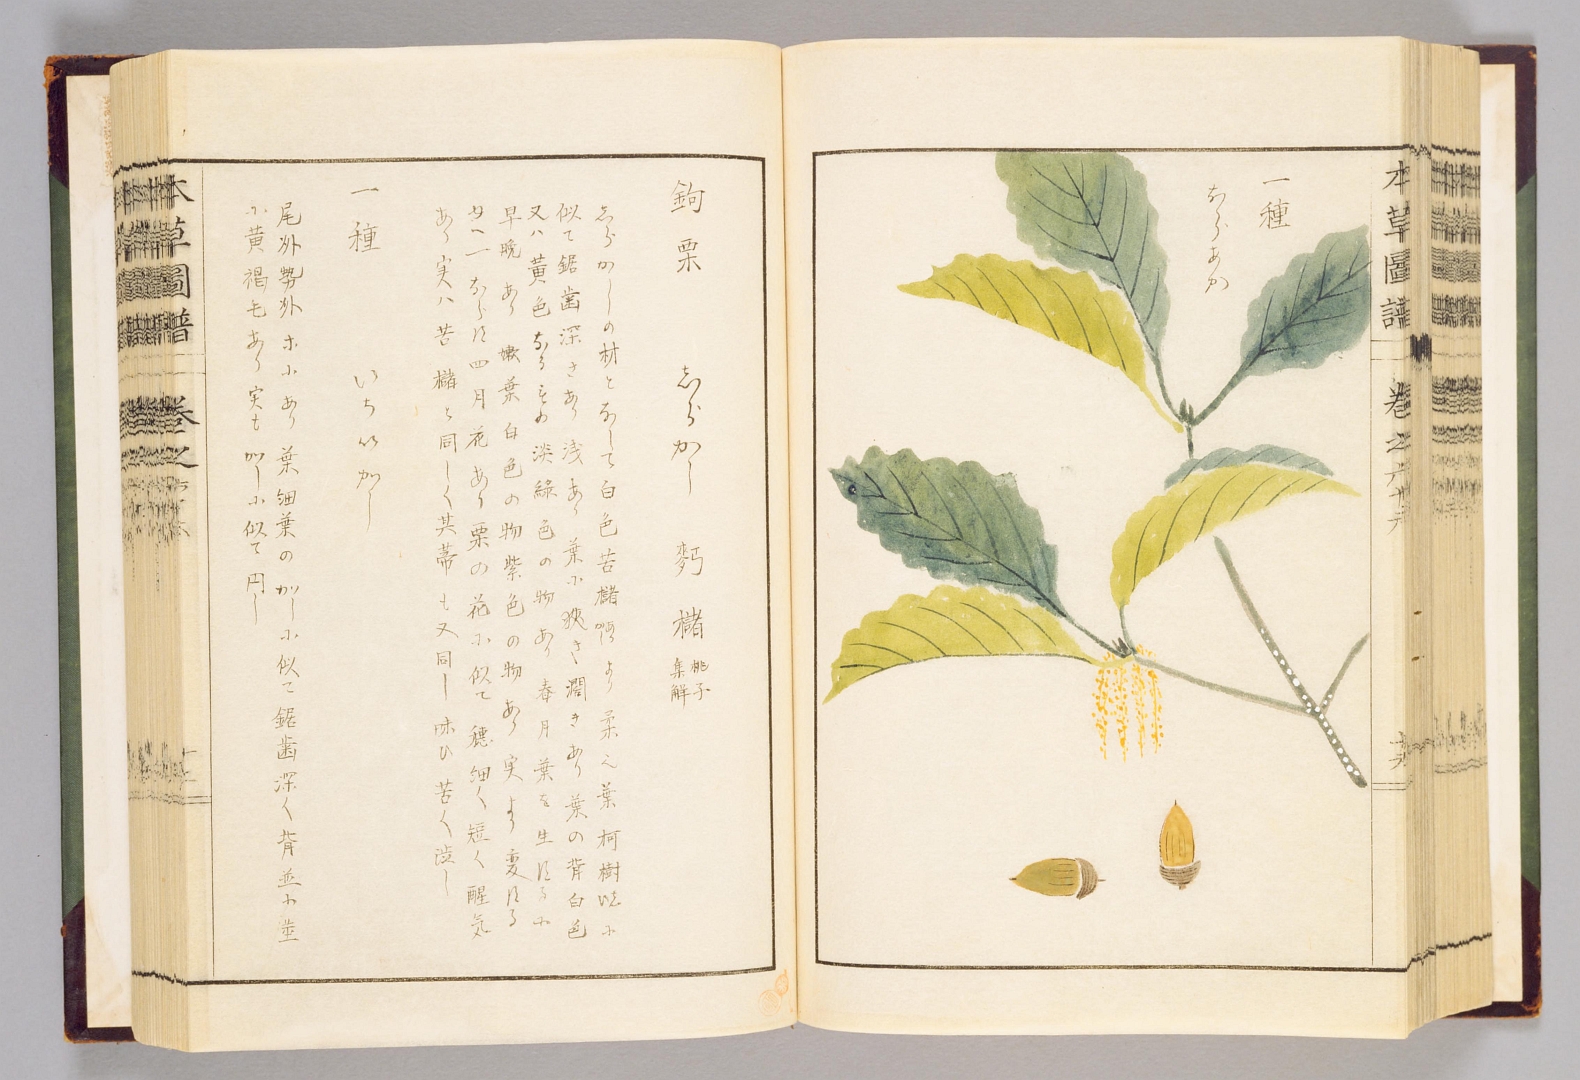 本草圖譜 卷之六十六
十六
一種
ならあか
鉤栗 志らかし 麫櫧 桃子集解
志らかしの材となして白色苦櫧より柔く葉柯樹に
似て鋸歯深きあり浅あり葉に狹き濶きあり葉の背白色
又ハ黄色なる淡緑色の物あり春月葉を生
早晩あり嫩葉白色の物紫色の物あり実より変
四月花あり栗の花に似て穗細く短く腥気
あり実ハ苦櫧と同しく其蒂も又同し味ひ苦く渋し
一種 いちいかし
尾州勢州ホにあり葉細葉のかしに似て鋸歯深く背並に莖
に黄褐毛あり実もかしに似て円し
本草圖譜 卷之六十六